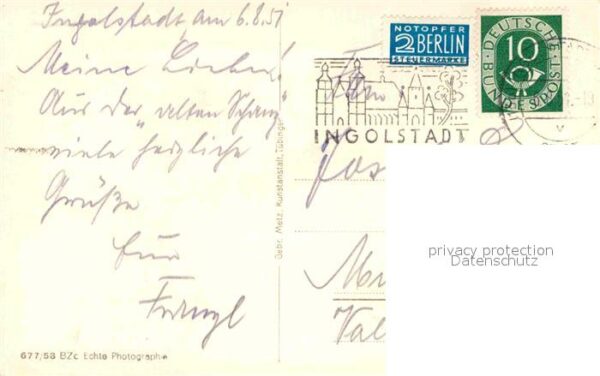 Ingolstadt, am 6.8.51
Meine Lieben!
Aus der "alten Schanz"
viele herzliche
Grüße
Euer
Franzl
677/58 BZc Echte Photographie
Gebr. Metz, Kunstanstalt, Tübingen
NOTOPFER
2 BERLIN
STEUERMARKE
DEUTSCHE BUNDESPOST
10
INGOLSTADT
privacy protection
Datenschutz